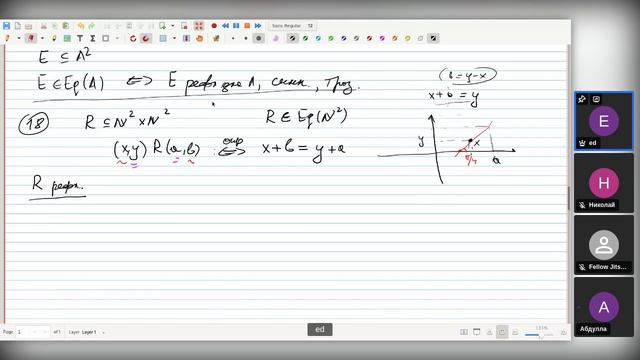 Sans Regular 12
E ⊆ A²
E ∈ Eq(A) ⟺ E рефл. на A, симм., тра.
(b = y - x)
x + b = y
18 R ⊆ ℕ² × ℕ² R ∈ Eq(ℕ²)
(x,y) R (a,b) :⟺ опр x + b = y + a
y x a
π/4
R рефл.
E
ed
H
Николай
Fellow Jits...
A
Абдулла
Page 1 of 1 Layer Layer 1
ed
131%